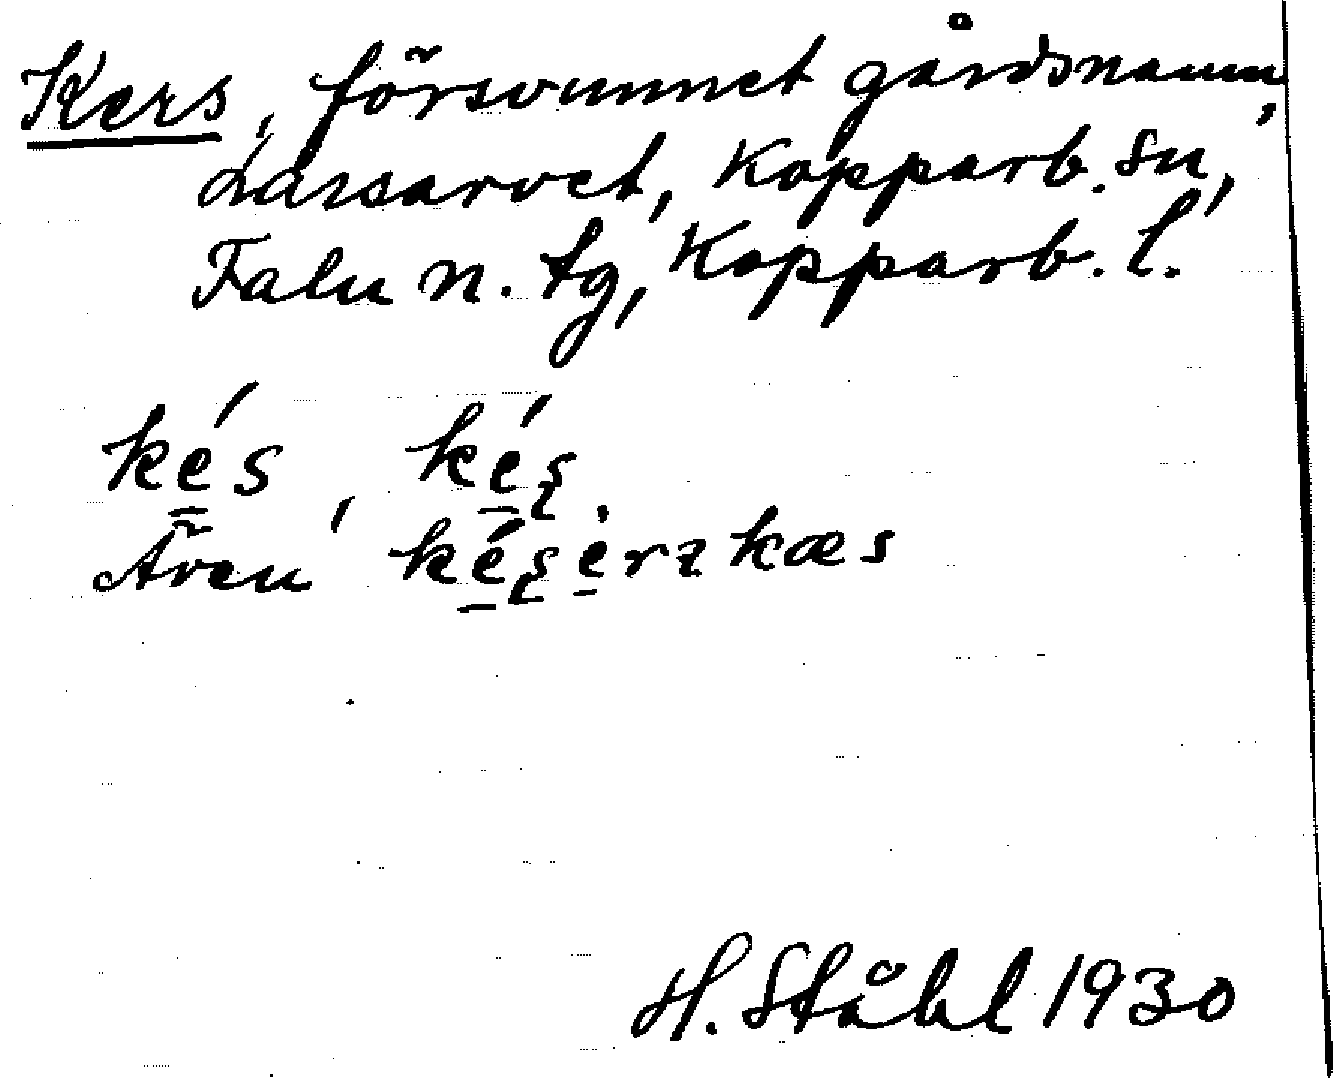 Kers, försvunnet gårdsnamn,
Lassarvet, Kopparb. sn,
Falu n. tg, Kopparb. l.
ké̲s, ké̲ʂ.
Även ké̲ʂe̲rɿkæs
H. Ståhl 1930